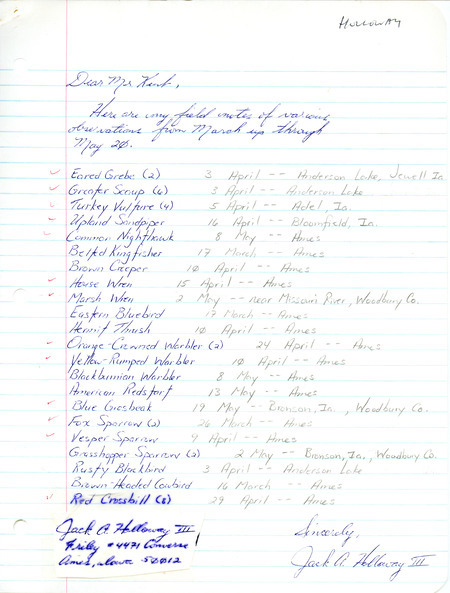 HOLLOWAY
Dear Mr. Kent,
Here are my field notes of various
observations from March up through
May 20.
Eared Grebe (2) 3 April -- Anderson Lake, Jewell Ia.
Greater Scaup (6) 3 April -- Anderson Lake
Turkey Vulture (4) 5 April -- Adel, Ia.
Upland Sandpiper 16 April -- Bloomfield, Ia.
Common Nighthawk 8 May -- Ames
Belted Kingfisher 17 March -- Ames
Brown Creeper 10 April -- Ames
House Wren 15 April -- Ames
Marsh Wren 2 May -- near Missouri River, Woodbury Co.
Eastern Bluebird 17 March -- Ames
Hermit Thrush 10 April -- Ames
Orange-Crowned Warbler (2) 24 April -- Ames
Yellow-Rumped Warbler 10 April -- Ames
Blackburnian Warbler 8 May -- Ames
American Redstart 13 May -- Ames
Blue Grosbeak 19 May -- Bronson, Ia., Woodbury Co.
Fox Sparrow (2) 26 March -- Ames
Vesper Sparrow 9 April -- Ames
Grasshopper Sparrow (2) 2 May -- Bronson, Ia., Woodbury Co.
Rusty Blackbird 3 April -- Anderson Lake
Brown-Headed Cowbird 16 March -- Ames
Red Crossbill (8) 29 April -- Ames
Jack A. Holloway III
Friley # 4471 Converse
Ames, Iowa 50012
Sincerely,
Jack A. Holloway III